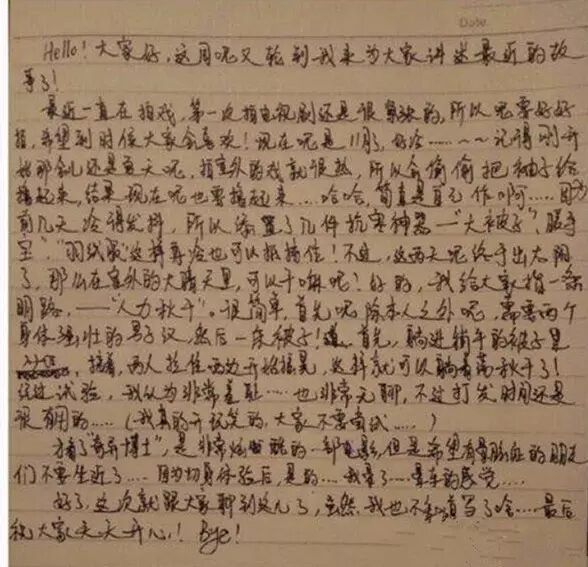 Date
Hello! 大家好,这周呢又轮到我来为大家讲述最近的故
事了!
最近一直在拍戏,第一次拍电视剧还是很紧张的,所以呢要好好
拍,希望到时候大家会喜欢!现在呢是11月,好冷……~~记得刚开
始那会儿还是夏天呢,拍室外的戏就很热,所以会偷偷把袖子给
撸起来,结果现在呢也要撸起来……哈哈,简直是自己作啊……因为
前几天冷得发抖,所以添置了几件抗寒神器—"大被子","暖手
宝","羽绒服"这样再冷也可以抵挡住!不过,这两天呢终于出太阳
了,那么在室外的大晴天里,可以干嘛呢?好的,我给大家指一条
明路,——"人力秋千"。很简单,首先呢除本人之外呢,需要两个
身体强壮的男子汉,然后一条被子!首先,躺进铺平的被子里
接着,两人拉住两边开始摇晃,这样就可以躺着荡秋千了!
经过试验,我认为非常羞耻……也非常无聊,不过打发时间还是
很有用的……(我真的开玩笑的,大家不要尝试……)
才看了"奇异博士",是非常炫酷的一部电影,但是希望有晕眩症的朋友
们不要坐近了……因为切身体验后,是的……我晕了……晕车的感觉……
好了,这次就跟大家聊到这儿了,当然,我也不啰嗦了哈……最后
祝大家天天开心!Bye!